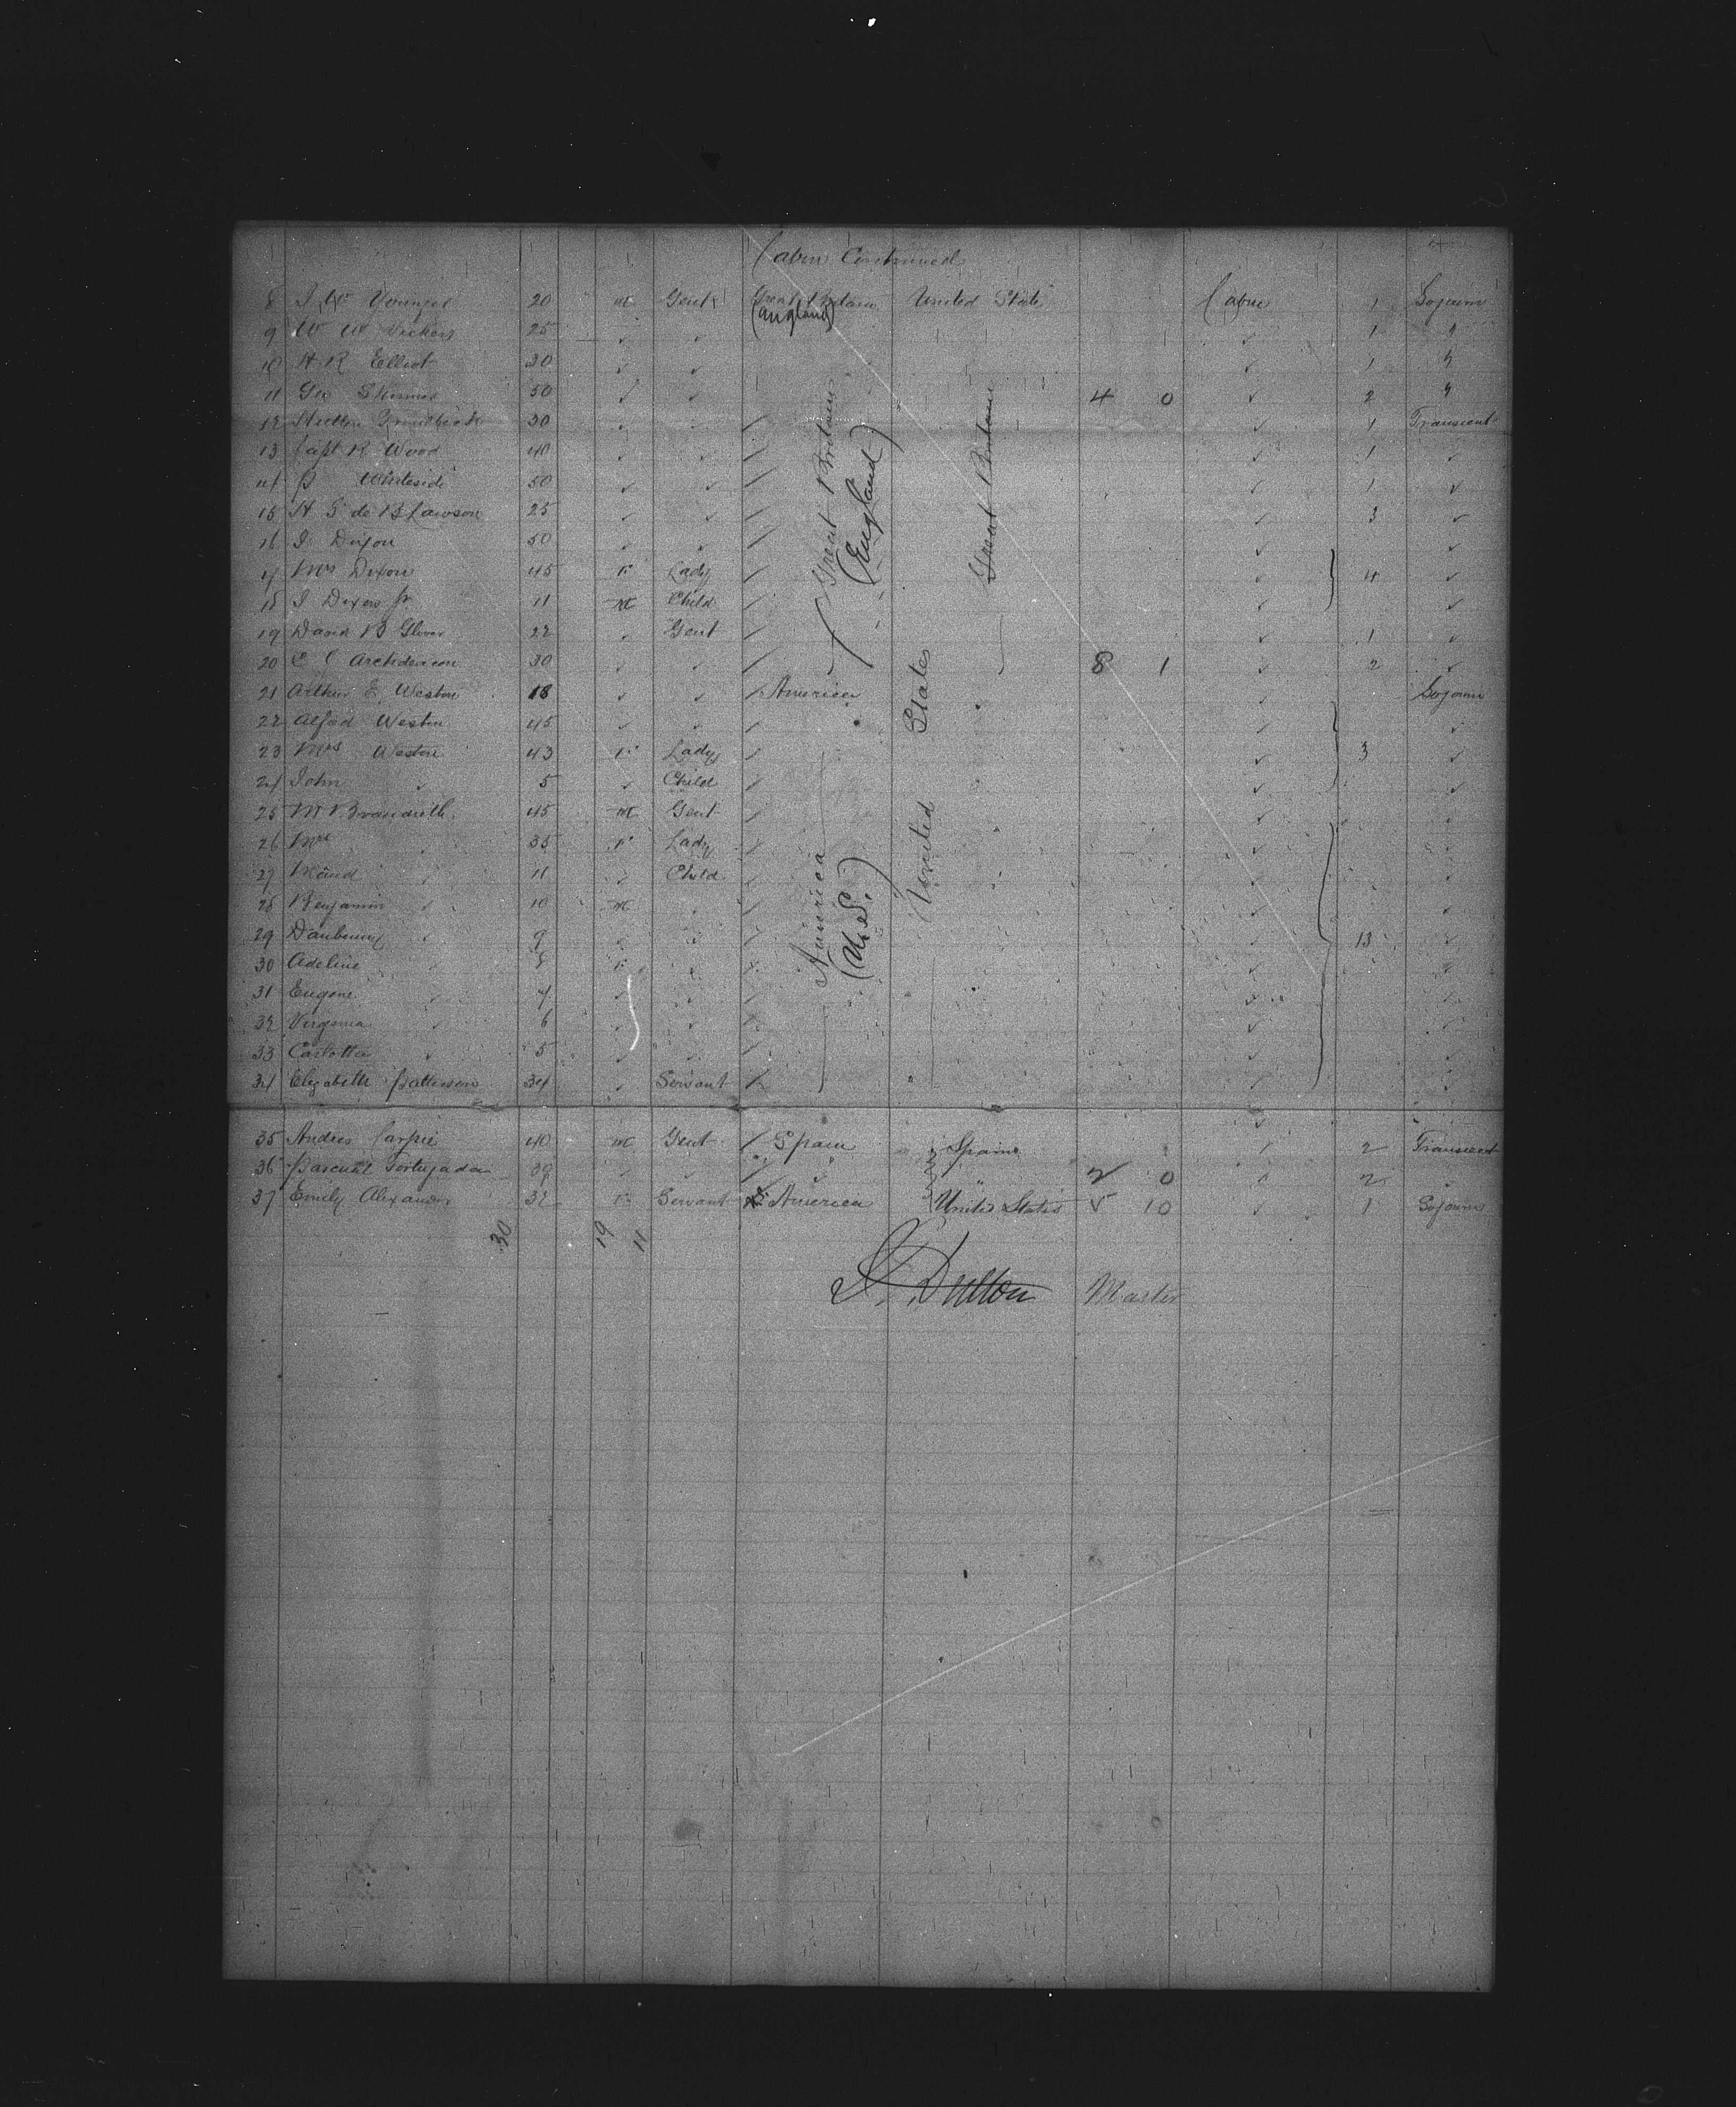 Cabin Continued
8 20 m Gent Great Britain United States Cabin 1 Sojourn
(England)
9 W W Vickers 25 ✓ ✓ ✓ 1 "
10 H R Elliot 30 ✓ ✓ ✓ 1 "
11 Geo Skinner 50 ✓ ✓ 4 0 ✓ 2 "
12 30 ✓ ✓ / ✓ 1 Transient
13 Capt R Wood 40 ✓ ✓ / ✓ 1 ✓
14 Whiteside 50 ✓ ✓ / ✓ 1 ✓
15 H S de B Lawson 25 ✓ ✓ / ✓ 3 ✓
16 J Dixon 50 ✓ ✓ / ✓ ✓
17 Mrs Dixon 45 F Lady / ✓ 4 ✓
18 J Dixon Jr 11 m Child / ✓ ✓
19 David B Glover 22 ✓ Gent / ✓ 1 ✓
Great Britain
(England)
Great Britain
20 E C Archdeacon 30 ✓ ✓ / 8 1 ✓ 2 ✓
21 Arthur E Weston 18 ✓ ✓ / America ✓ Sojourn
22 Alfred Weston 45 ✓ ✓ / ✓ ✓
23 Mrs Weston 43 F Lady / ✓ 3 ✓
24 John ✓ 5 ✓ Child / ✓ ✓
25 Mr Brandreth 45 m Gent / ✓ ✓
26 Mrs 35 F Lady / ✓ ✓
27 Maud ✓ 11 ✓ Child / ✓ ✓
28 Benjamin ✓ 10 m / ✓ ✓
29 ✓ 9 ✓ / ✓ 13 ✓
30 Adeline ✓ F ✓ / ✓ ✓
31 Eugene ✓ ✓ ✓ / ✓ ✓
32 Virginia ✓ 6 ✓ ✓ / ✓ ✓
33 Carlotta ✓ 5 ✓ ✓ / ✓ ✓
34 Elizabeth Patterson 34 ✓ Servant / ✓ ✓
America
(U.S.)
United States
35 Andres Carpie 40 m Gent / Spain Spain 2 Transient
36 Pascual Fortugada 39 ✓ / " " 2 0 2
37 Emily Alexander 32 F Servant America United States 5 10 ✓ 1 Sojourn
30 19 11
Dutton Master